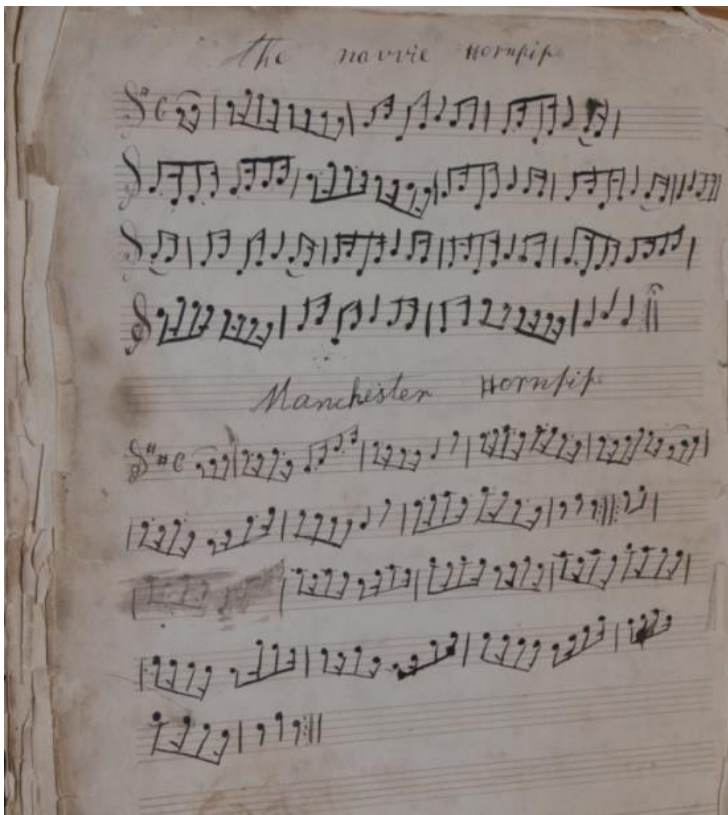 the navvie Hornpipe
Manchester Hornpipe